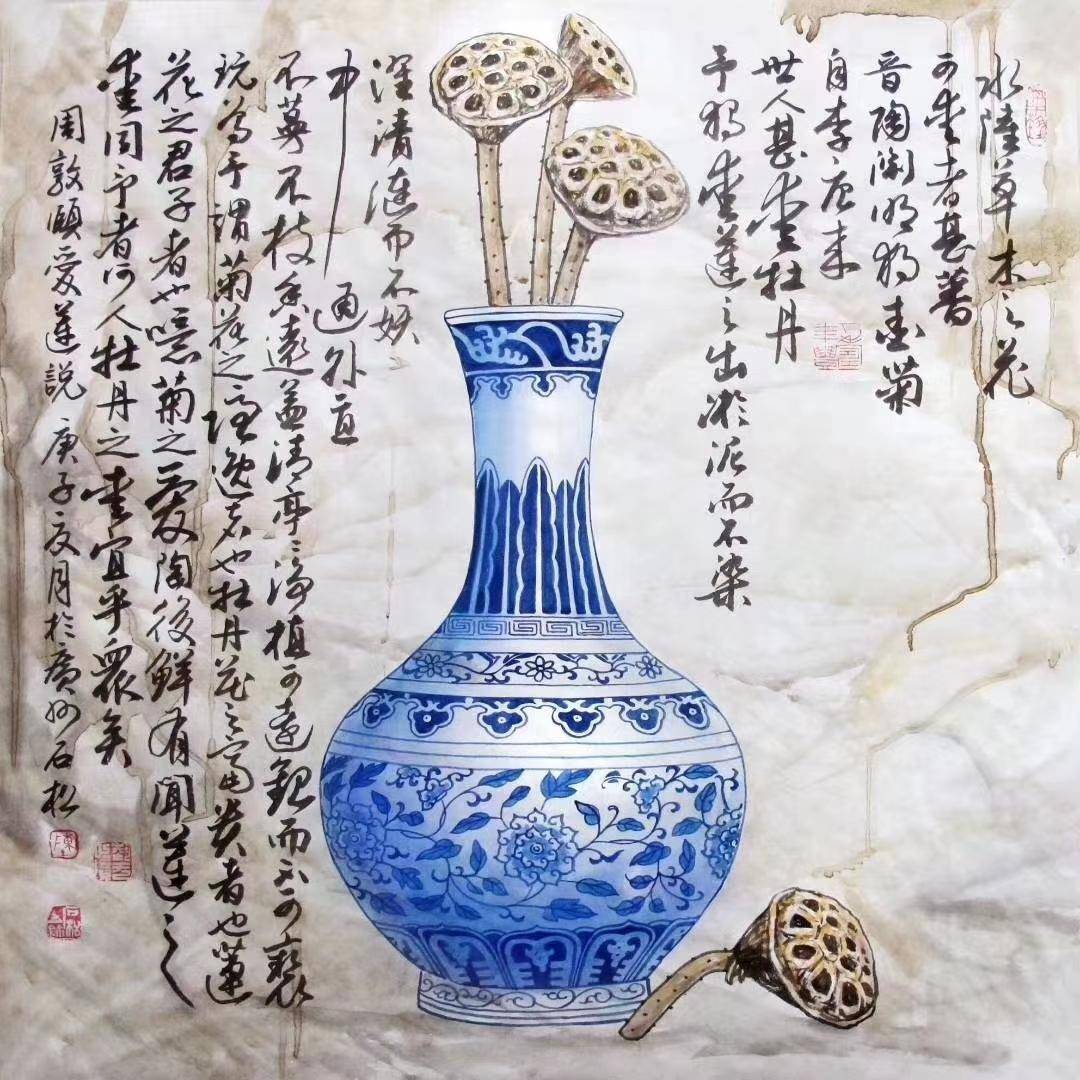 水陸草木之花
可愛者甚蕃
晉陶淵明獨愛菊
自李唐来
世人甚愛牡丹
予獨愛蓮之出淤泥而不染
濯清漣而不妖
中通外直
不蔓不枝香遠益清亭々淨植可遠觀而不可褻
玩焉予謂菊花之隱逸者也牡丹花之富貴者也蓮
花之君子者也噫菊之愛陶後鮮有聞蓮之
愛同予者何人牡丹之愛宜乎衆矣
周敦頤愛蓮説 庚子夏月於廣州石松
陳